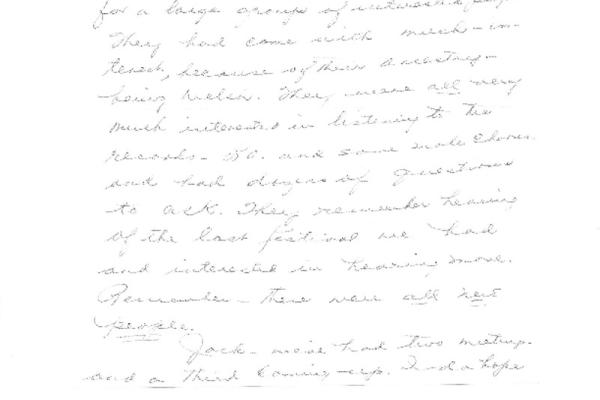 for a large group of interested people
They had come with much in-
terest, because of their ancestry -
being Welsh. They were all very
much interested in listening to the
records - and some male chorus
and had dozens of questions
to ask. They remember hearing
of the last festival we had
and interested in hearing more.
Remember - there were all new
people.
Jack - we've had two meetings
and a third coming up. And a hope